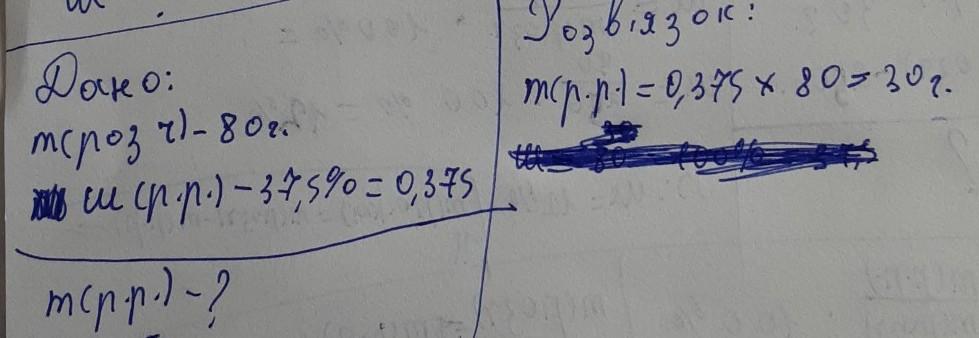 Дано:
m(роз ч) - 80г.
ш (р.р.) - 37,5% = 0,375
m(р.р.) - ?
Розвіязок:
m(р.р.) = 0,375 × 80 = 30г.